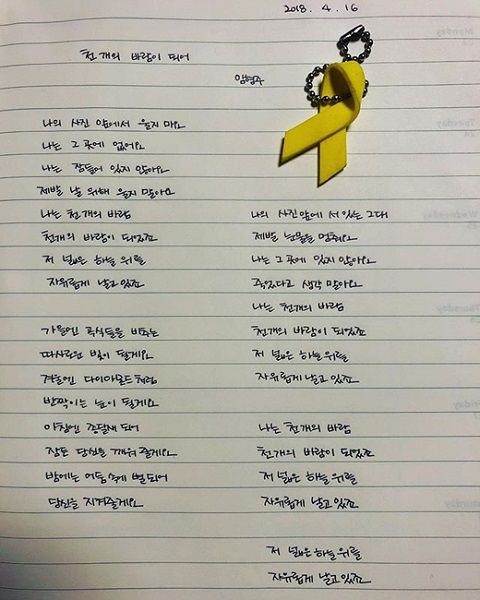 2018. 4. 16
천 개의 바람이 되어
임형주
나의 사진 앞에서 울지 마요
나는 그 곳에 없어요
나는 잠들어 있지 않아요
제발 날 위해 울지 말아요
나는 천 개의 바람
천개의 바람이 되었죠
저 넓은 하늘 위를
자유롭게 날고 있죠
가을엔 곡식들을 비추는
따사로운 빛이 될게요
겨울엔 다이아몬드처럼
반짝이는 눈이 될게요
아침엔 종달새 되어
잠든 당신을 깨워 줄게요
밤에는 어둠 속에 별 되어
당신을 지켜줄게요
나의 사진 앞에 서 있는 그대
제발 눈물을 멈춰요
나는 그 곳에 있지 않아요
죽었다고 생각 말아요
나는 천 개의 바람
천개의 바람이 되었죠
저 넓은 하늘 위를
자유롭게 날고 있죠
나는 천 개의 바람
천개의 바람이 되었죠
저 넓은 하늘 위를
자유롭게 날고 있죠
저 넓은 하늘 위를
자유롭게 날고 있죠